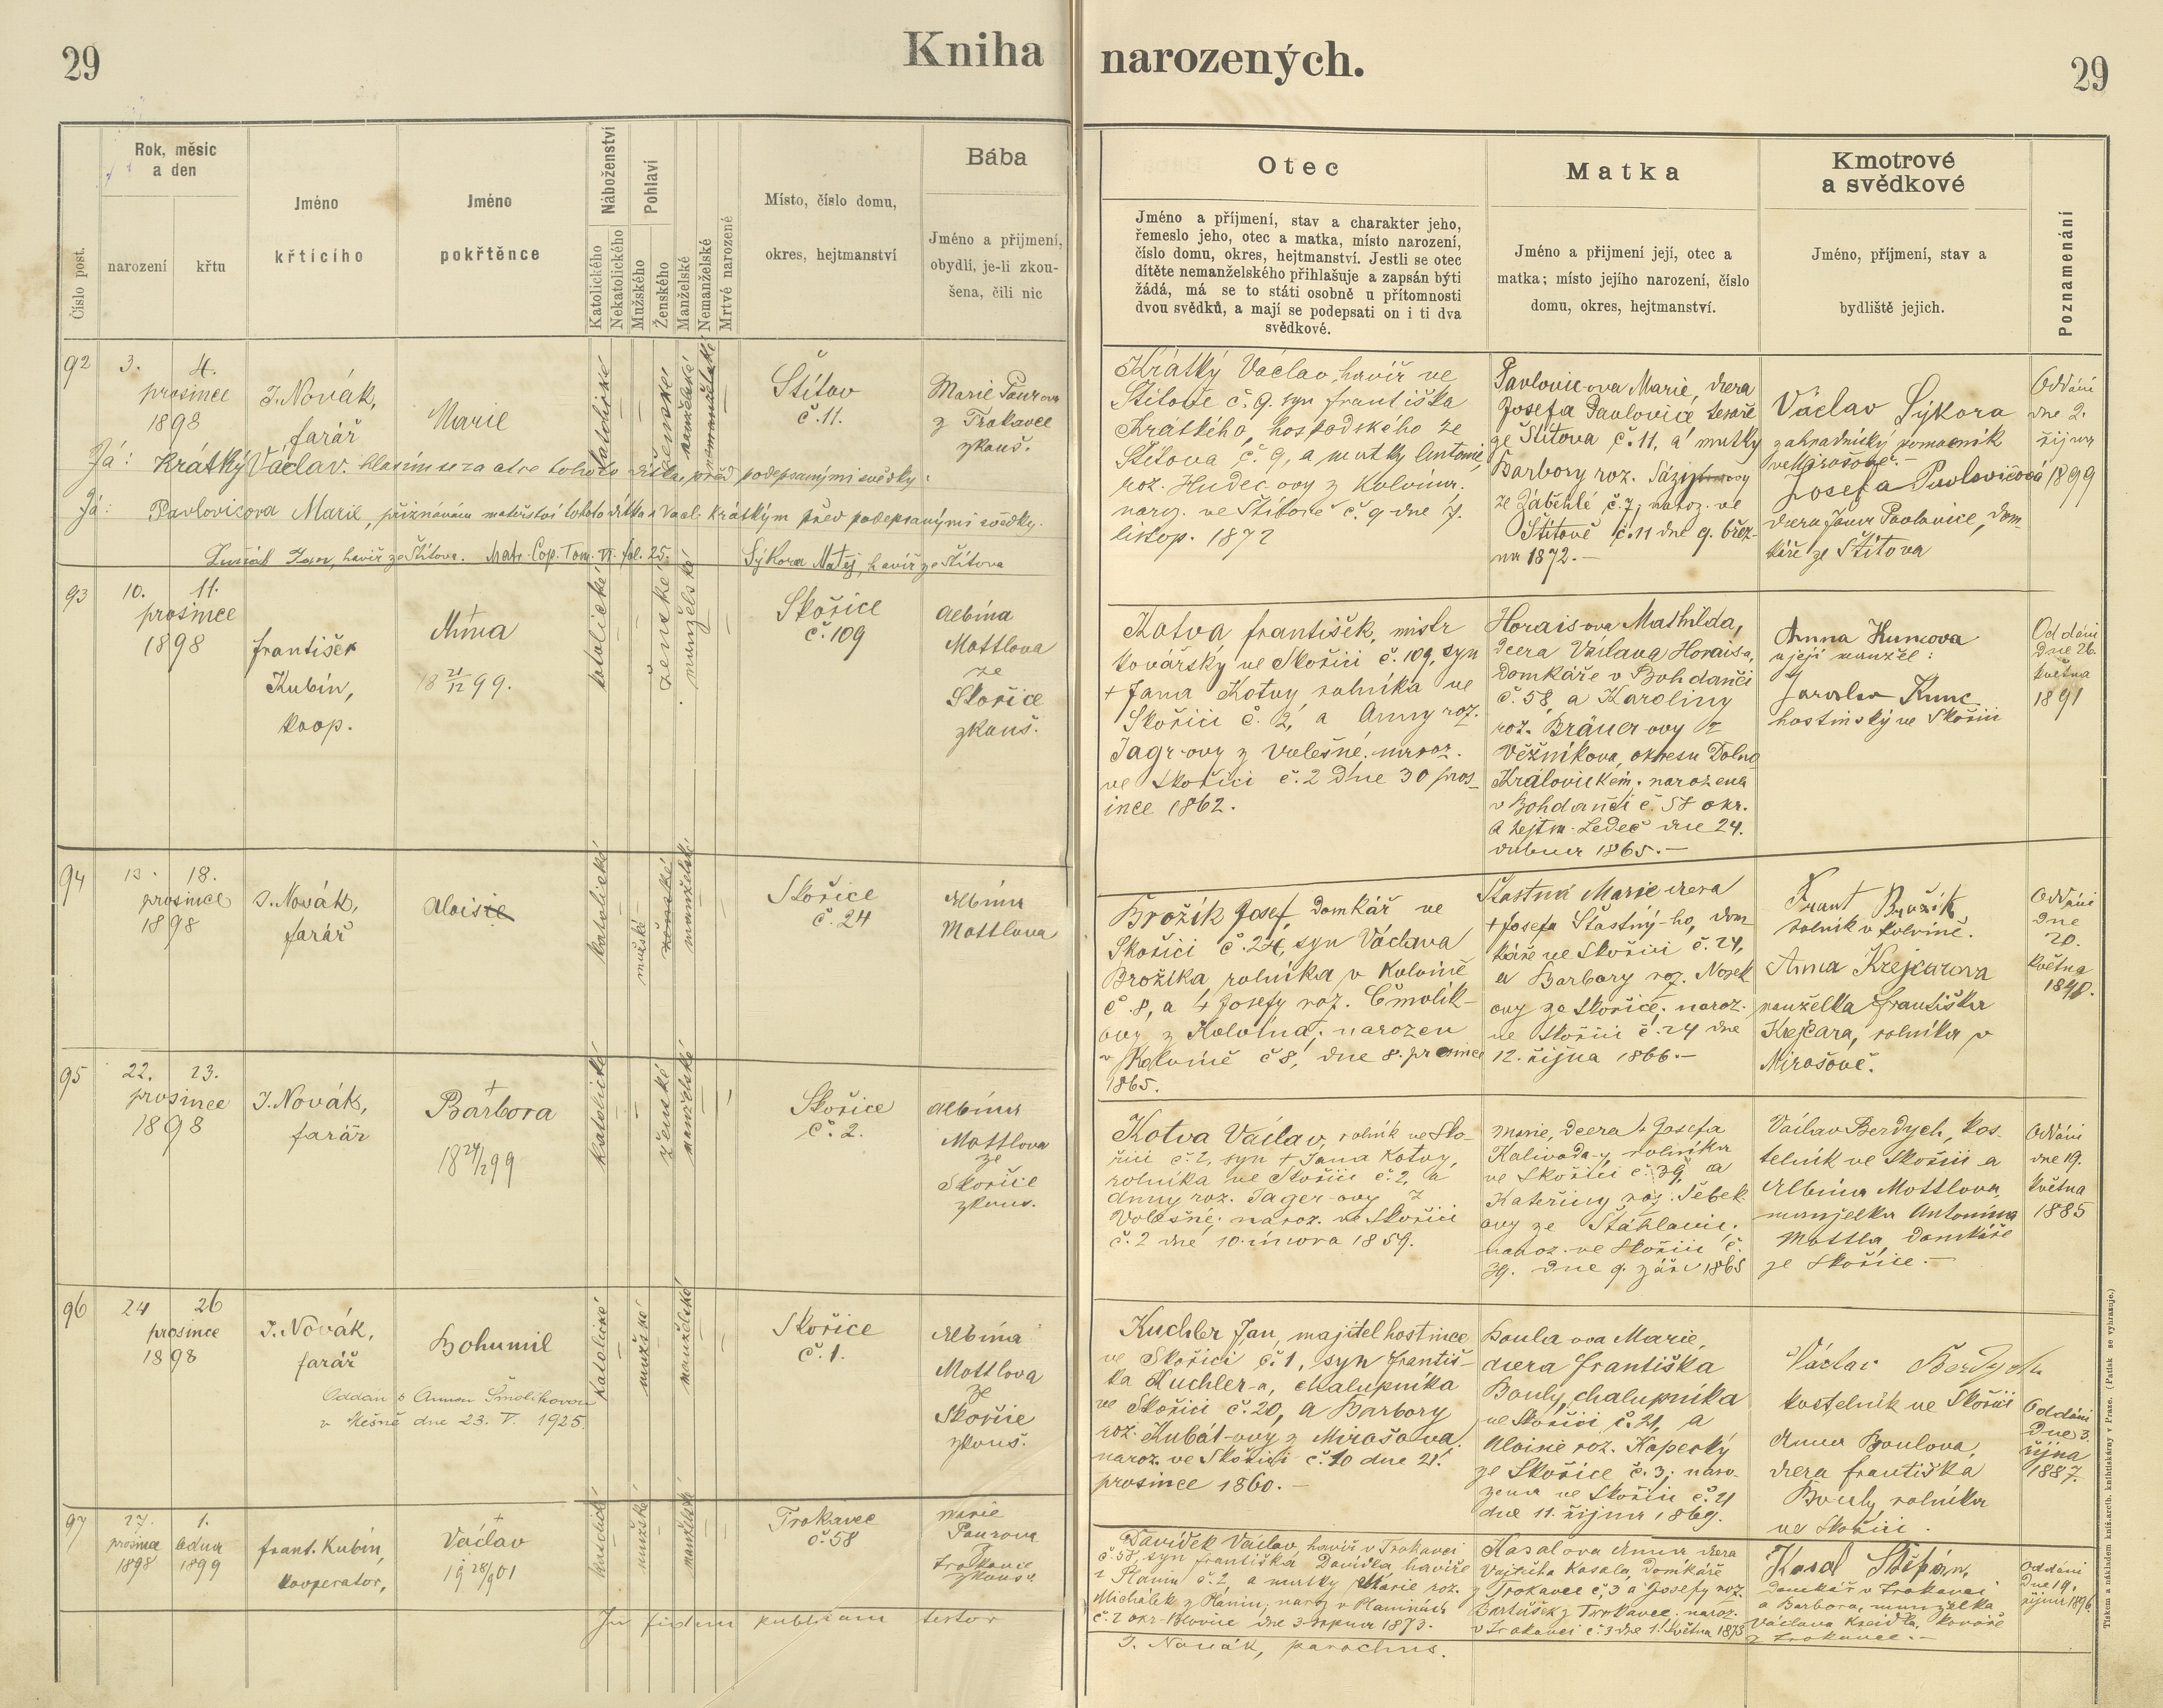 29
Kniha narozených.
29
Číslo post.
Rok, měsíc
a den
narození
křtu
Jméno
křtícího
Jméno
pokřtěnce
Náboženství
Katolického
Nekatolického
Pohlaví
Mužského
Ženského
Manželské
Nemanželské
Mrtvé narozené
Místo, číslo domu,
okres, hejtmanství
Bába
Jméno a přijmení,
obydlí, je-li zkou-
šena, čili nic
Otec
Jméno a příjmení, stav a charakter jeho,
řemeslo jeho, otec a matka, místo narození,
číslo domu, okres, hejtmanství. Jestli se otec
dítěte nemanželského přihlašuje a zapsán býti
žádá, má se to státi osobně u přítomnosti
dvou svědků, a mají se podepsati on i ti dva
svědkové.
Matka
Jméno a přijmení její, otec a
matka; místo jejího narození, číslo
domu, okres, hejtmanství.
Kmotrové
a svědkové
Jméno, příjmení, stav a
bydliště jejich.
Poznamenání
92
3. 4.
prosince
1898
J. Novák,
farář
Marie
katolické
ženské
manželské
nemanželské
Štítov
č. 11.
Marie Paurova
z Trokavce
zkouš.
Já: Krátký Václav. hlásím se za otce tohoto dítka, před podepsanými svědky:
Já: Pavlovicova Marie, přiznávám mateřství tohoto dítka s Václ. Krátkým před podepsanými svědky.
Jan, havíř ze Štítova. Matr. Cop. Tom. VI. fol. 25. Sýkora Matěj, havíř ze Štítova
Krátký Václav, havíř ve
Štítově č. 9. syn Františka
Krátkého, hospodského ze
Štítova č. 9, a matky Antonie,
roz. Hudec ovy z Kolvína.
naroz. ve Štítově č. 9 dne 7.
listop. 1872
Pavlovic-ova Marie, dcera
Josefa Pavlovice tesaře
ze Štítova č. 11, a matky
Barbory roz.
ze Zábělé č. 7; naroz. ve
Štítově č. 11 dne 9. břez-
na 1872.-
Václav Sýkora
zahradnický pomocník
ve Mirošově.-
Josefa Pavlovicová
dcera Jana Pavlovice, dom-
káře ze Štítova
Oddáni
dne 2.
října
1899
93
10. 11.
prosince
1898
František
Kubín,
koop.
+
Anna
18 21/12 99.
katolické
ženské
manželské
Skořice
č. 109
Albína
Mottlova
ze
Skořice
zkouš.
Kotva František, mistr
kovářský ve Skořici č. 109, syn
+ Jana Kotvy rolníka ve
Skořici č. 2, a Anny roz.
Jagr-ovy z Volešné; naroz.
ve Skořici č. 2 dne 30 pros-
ince 1862.
Horaisova Mathilda,
dcera Václava Horaisa,
domkáře v Bohdanči
č. 58, a Karoliny
roz. Bräuer-ovy z
Věžníkova, okresu Dolno
Královickém; narozena
v Bohdanči č. 58 okr.
a hejtm. Ledeč dne 24.
dubna 1865.-
Anna Kuncova
a její manžel:
Jaroslav Kunc
hostinský ve Skořici
Oddáni
dne 26.
května
1891
94
13. 18.
prosince
1898
J. Novák,
farář
Alois
katolické
mužské
ženské
manželské
Skořice
č. 24
Albína
Mottlova
Brožík Josef, domkář ve
Skořici č. 24, syn Václava
Brožíka, rolníka v Kolvíně
č. 8, a + Josefy roz. Čmolík-
ovy z Kolvína; narozen
v Kolvíně č 8, dne 8. prosince
1865.
Šťastná Marie dcera
+ Josefa Šťastný-ho, dom
káře ve Skořici č. 24,
a Barbory roz. Nosek
ovy ze Skořice; naroz.
ve Skořici č. 24 dne
12. října 1866.-
Frant Brožík
rolník v Kolvíně.
Anna Krejcarova
manželka Františka
Krejcara, rolníka v
Mirošově.
Oddáni
dne
20.
května
95
22. 23.
prosince
1898
J. Novák,
farář
+
Barbora
katolické
ženské
manželské
Skořice
č. 2.
Albína
Mottlova
ze
Skořice
zkouš.
Kotva Václav, rolník ve Sko-
řici č. 2, syn + Jana Kotvy,
rolníka ve Skořici č. 2, a
Anny roz. Jager-ovy z
Volešné; naroz. ve Skořici
č. 2 dne 10. února 1859.
Marie, dcera + Josefa
Kalivoda-y, rolníka
ve Skořici č. 39, a
Kateřiny roz. Šebek
ovy ze Štáhlavic;
naroz. ve Skořici č.
39. dne 9. září 1865
Václav Berdych, kos-
telník ve Skořici a
Albína Mottlova,
manželka Antonína
Mottla, domkáře
ze Skořice.-
Oddáni
dne 19.
května
1885
96
24 26
prosince
1898
J. Novák,
farář
Bohumil
Oddán s Annou Šmolíkovou
v Mešně dne 23. V. 1925.
katolické
mužské
manželské
Skořice
č. 1.
Albína
Mottlova
ze
Skořice
zkouš.
Kuchler Jan, majitel hostince
ve Skořici č. 1, syn Františ-
ka Kuchler-a, chalupníka
ve Skořici č. 20, a Barbory
roz. Kubát-ovy z Mirošova.
naroz. ve Skořici č. 20 dne 21.
prosince 1860.-
Boula ova Marie,
dcera Františka
Bouly, chalupníka
ve Skořici č. 21, a
Aloisie roz. Kápeský
ze Skořice č. 3; naro-
zena ve Skořici č. 21
dne 11. října 1869.
Václav Berdych
kostelník ve Skořici
Anna Boulova,
dcera Františka
Bouly, rolníka
ve Skořici.
Oddáni
dne 3.
října
1887.
97
27. 1.
prosince ledna
1898 1899
Frant. Kubín,
kooperator,
+
Václav
19 28/9 01
katolické
mužské
manželské
Trokavec
č. 58
Marie
Paurova
Trokavec
zkouš.
Davídek Václav, havíř v Trokavci
č. 58, syn Františka Davídka havíře
z Planin č. 2 a matky Marie roz.
Michálek z Planin; naroz. v Planinách
č. 2 okr. Blovice dne 3. srpna 1873.
Kasalova Anna dcera
Vojtěcha Kasala, domkáře
z Trokavce č. 3 a Josefy roz.
Bartůšek z Trokavce. naroz.
v Trokavci č. 3 dne 1. května 1873
Kasal Štěpán,
domkář v Trokavci
a Barbora, manželka
Václava Kreidla, kováře
z Trokavce.-
Oddáni
dne 19.
října 1896.
In fidem publicam testor
J. Novák, parochus.
Tiskem a nákladem kníž. arcib. knihtiskárny v Praze. (Patisk se vyhrazuje.)